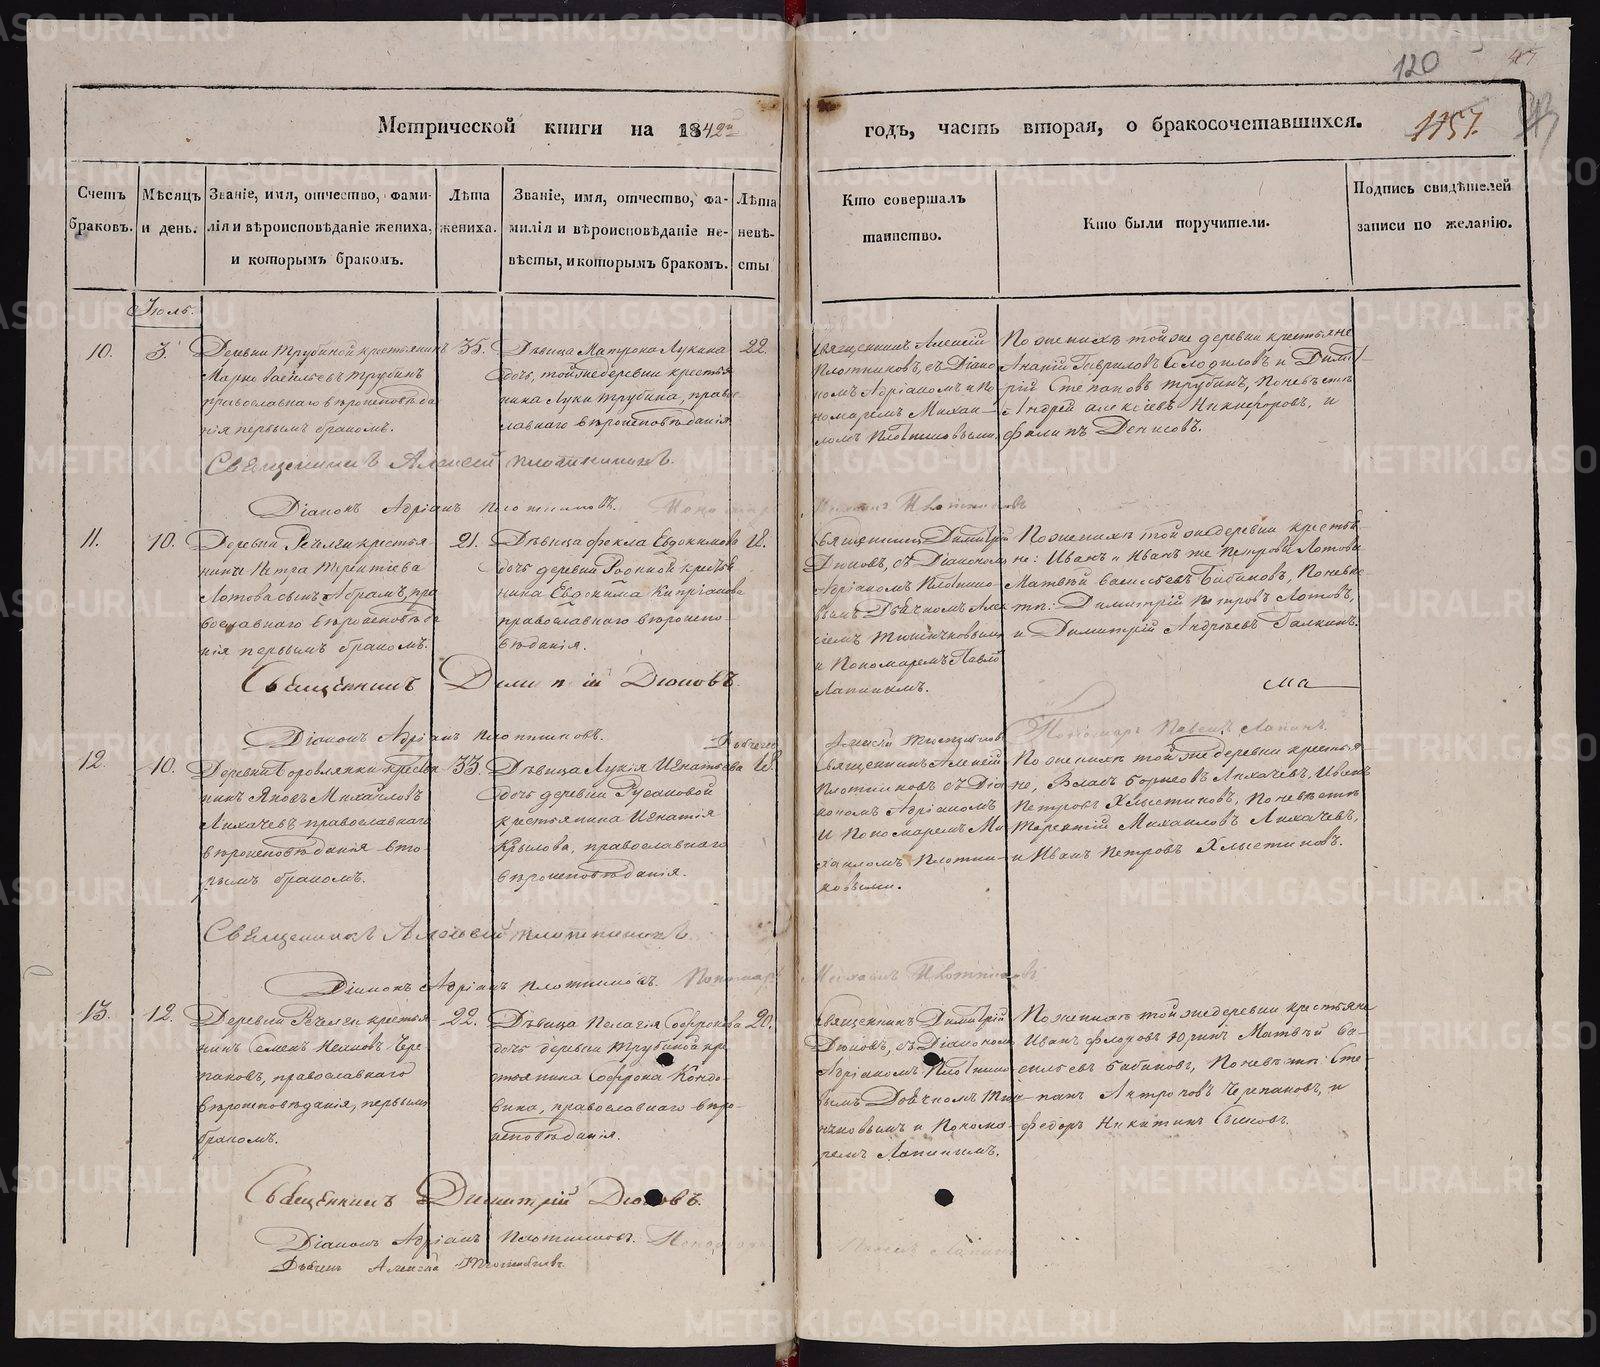 120
1757.
Метрической книги на 1842й годъ, часть вторая, о бракосочетавшихся.
Счетъ браковъ.
Мѣсяцъ и день.
Званіе, имя, отчество, фами-
лія и вѣроисповѣданіе жениха,
и которымъ бракомъ.
Лѣта
жениха.
Званіе, имя, отчество, фа-
милія и вѣроисповѣданіе не-
вѣсты, и которымъ бракомъ.
Лѣта
невѣ-
сты
Кто совершалъ
таинство.
Кто были поручители.
Подпись свидѣтелей
записи по желанію.
Іюль.
10.
3.
Деревни Трубиной крестьянинъ
Марко Васильевъ Трубинъ
православнаго вѣроисповѣда
нія первымъ бракомъ.
35.
Дѣвица Матрона Лукина
дочь, тойже деревни крестья
нина Луки Трубина, право
славнаго вѣроисповѣданія
22.
Священникъ Алексій
Плотниковъ, съ Діако
номъ Адріаномъ и По
номаремъ Михаи-
ломъ Плотниковыми
По женихѣ той же деревни крестьяне
Ананій Гавриловъ Солодиловъ и Дими-
трій Степановъ Трубинъ, По невѣстѣ
Андрей Алексіевъ Никифоровъ, и
Филипъ Денисовъ.
Священникъ Алексій Плотниковъ.
Діаконъ Адріанъ Плотниковъ. Пономарь Михаилъ Плотниковъ
11.
10.
Деревни Речелги крестья
нина Петра Терентіева
Лотова сынъ Абрамъ, пра
вославнаго вѣроисповѣда
нія первымъ бракомъ.
21.
Дѣвица Фекла Евдокимова
дочь деревни крестья
нина Евдокима Кипріанова
православнаго вѣроиспо-
вѣданія.
Священникъ Димитрій
Дюковъ, съ Діакономъ
Адріаномъ Плотнико
вымъ Дьячкомъ Алек
сіемъ
и Пономаремъ Павло
Лапинымъ.
По женихѣ той же деревни крестья
не: Иванъ и Иванъ же Петровы Лотовы
Матвѣй Васильевъ Бабиковъ, По невѣс
тѣ: Димитрій Петровъ Лотовъ,
и Димитрій Андреевъ Галкинъ.
Священникъ Димитрій Дюковъ.
Діаконъ Адріанъ Плотниковъ.
Дьячекъ
Пономарь Павелъ Лапинъ.
12.
10.
Деревни Боровлянки крестья
нинъ Яковъ Михайловъ
Лихачевъ православнаго
вѣроисповѣданія вто-
рымъ бракомъ.
33.
Дѣвица Лукія Игнатьева
дочь деревни Русаковой
крестьянина Игнатія
Крылова, православнаго
вѣроисповѣданія.
Священникъ Алексій
Плотниковъ съ Діа
кономъ Адріаномъ
и Пономаремъ Ми-
хаиломъ Плотни-
ковыми.
По женихѣ той же деревни крестья-
не, Власъ Борисовъ Лихачевъ, Иванъ
Петровъ Хлыстиковъ, По невѣстѣ
Терентій Михаиловъ Лихачевъ,
и Иванъ Петровъ Хлыстиковъ.
Священникъ Алексій Плотниковъ
Діаконъ Адріанъ Плотниковъ. Пономарь Михаилъ Плотниковъ
13.
12.
Деревни Речелги крестья
нинъ Семенъ Чере
пановъ, православнаго
вѣроисповѣданія, первымъ
бракомъ.
22.
Дѣвица Пелагія Софронова
дочь деревни Трубиной кре
стьянина Софрона Кондо-
вина, православнаго вѣро-
исповѣданія.
20.
Священникъ Димитрій
Дюковъ, съ Діакономъ
Адріаномъ Плотнико
вымъ Дьячкомъ
и Понома-
ремъ Лапинымъ.
По женихѣ той же деревни крестьяне
Иванъ Федоровъ Матвѣй Ва-
сильевъ Бабиковъ, По невѣстѣ: Сте-
панъ Антроповъ Черепановъ, и
Федоръ Никитинъ
Священникъ Димитрій Дюковъ.
Діаконъ Адріанъ Плотниковъ. Пономарь Павелъ Лапинъ
Дьячекъ Алексѣй
METRIKI.GASO-URAL.RU